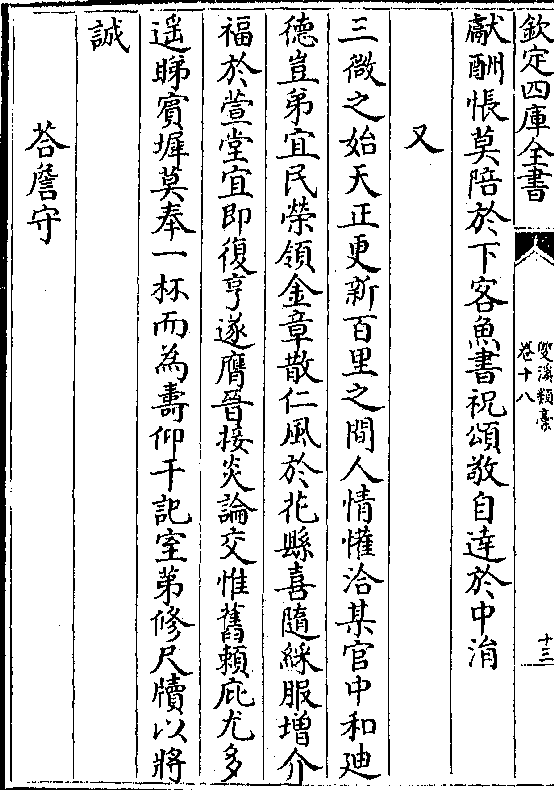 欽定四庫全書
雙溪類藳
卷十八
十三
獻酬悵莫陪於下客魚書祝頌敬自達於中涓
又
三微之始天正更新百里之間人情懽洽某官中和廸
德豈弟宜民榮領金章散仁風於花縣喜隨綵服增介
福於萱堂宜即復亨遂膺晉接炎論交惟舊賴庇尤多
遥睇賓墀莫奉一杯而為壽仰干記室第修尺牘以將
誠
荅詹守